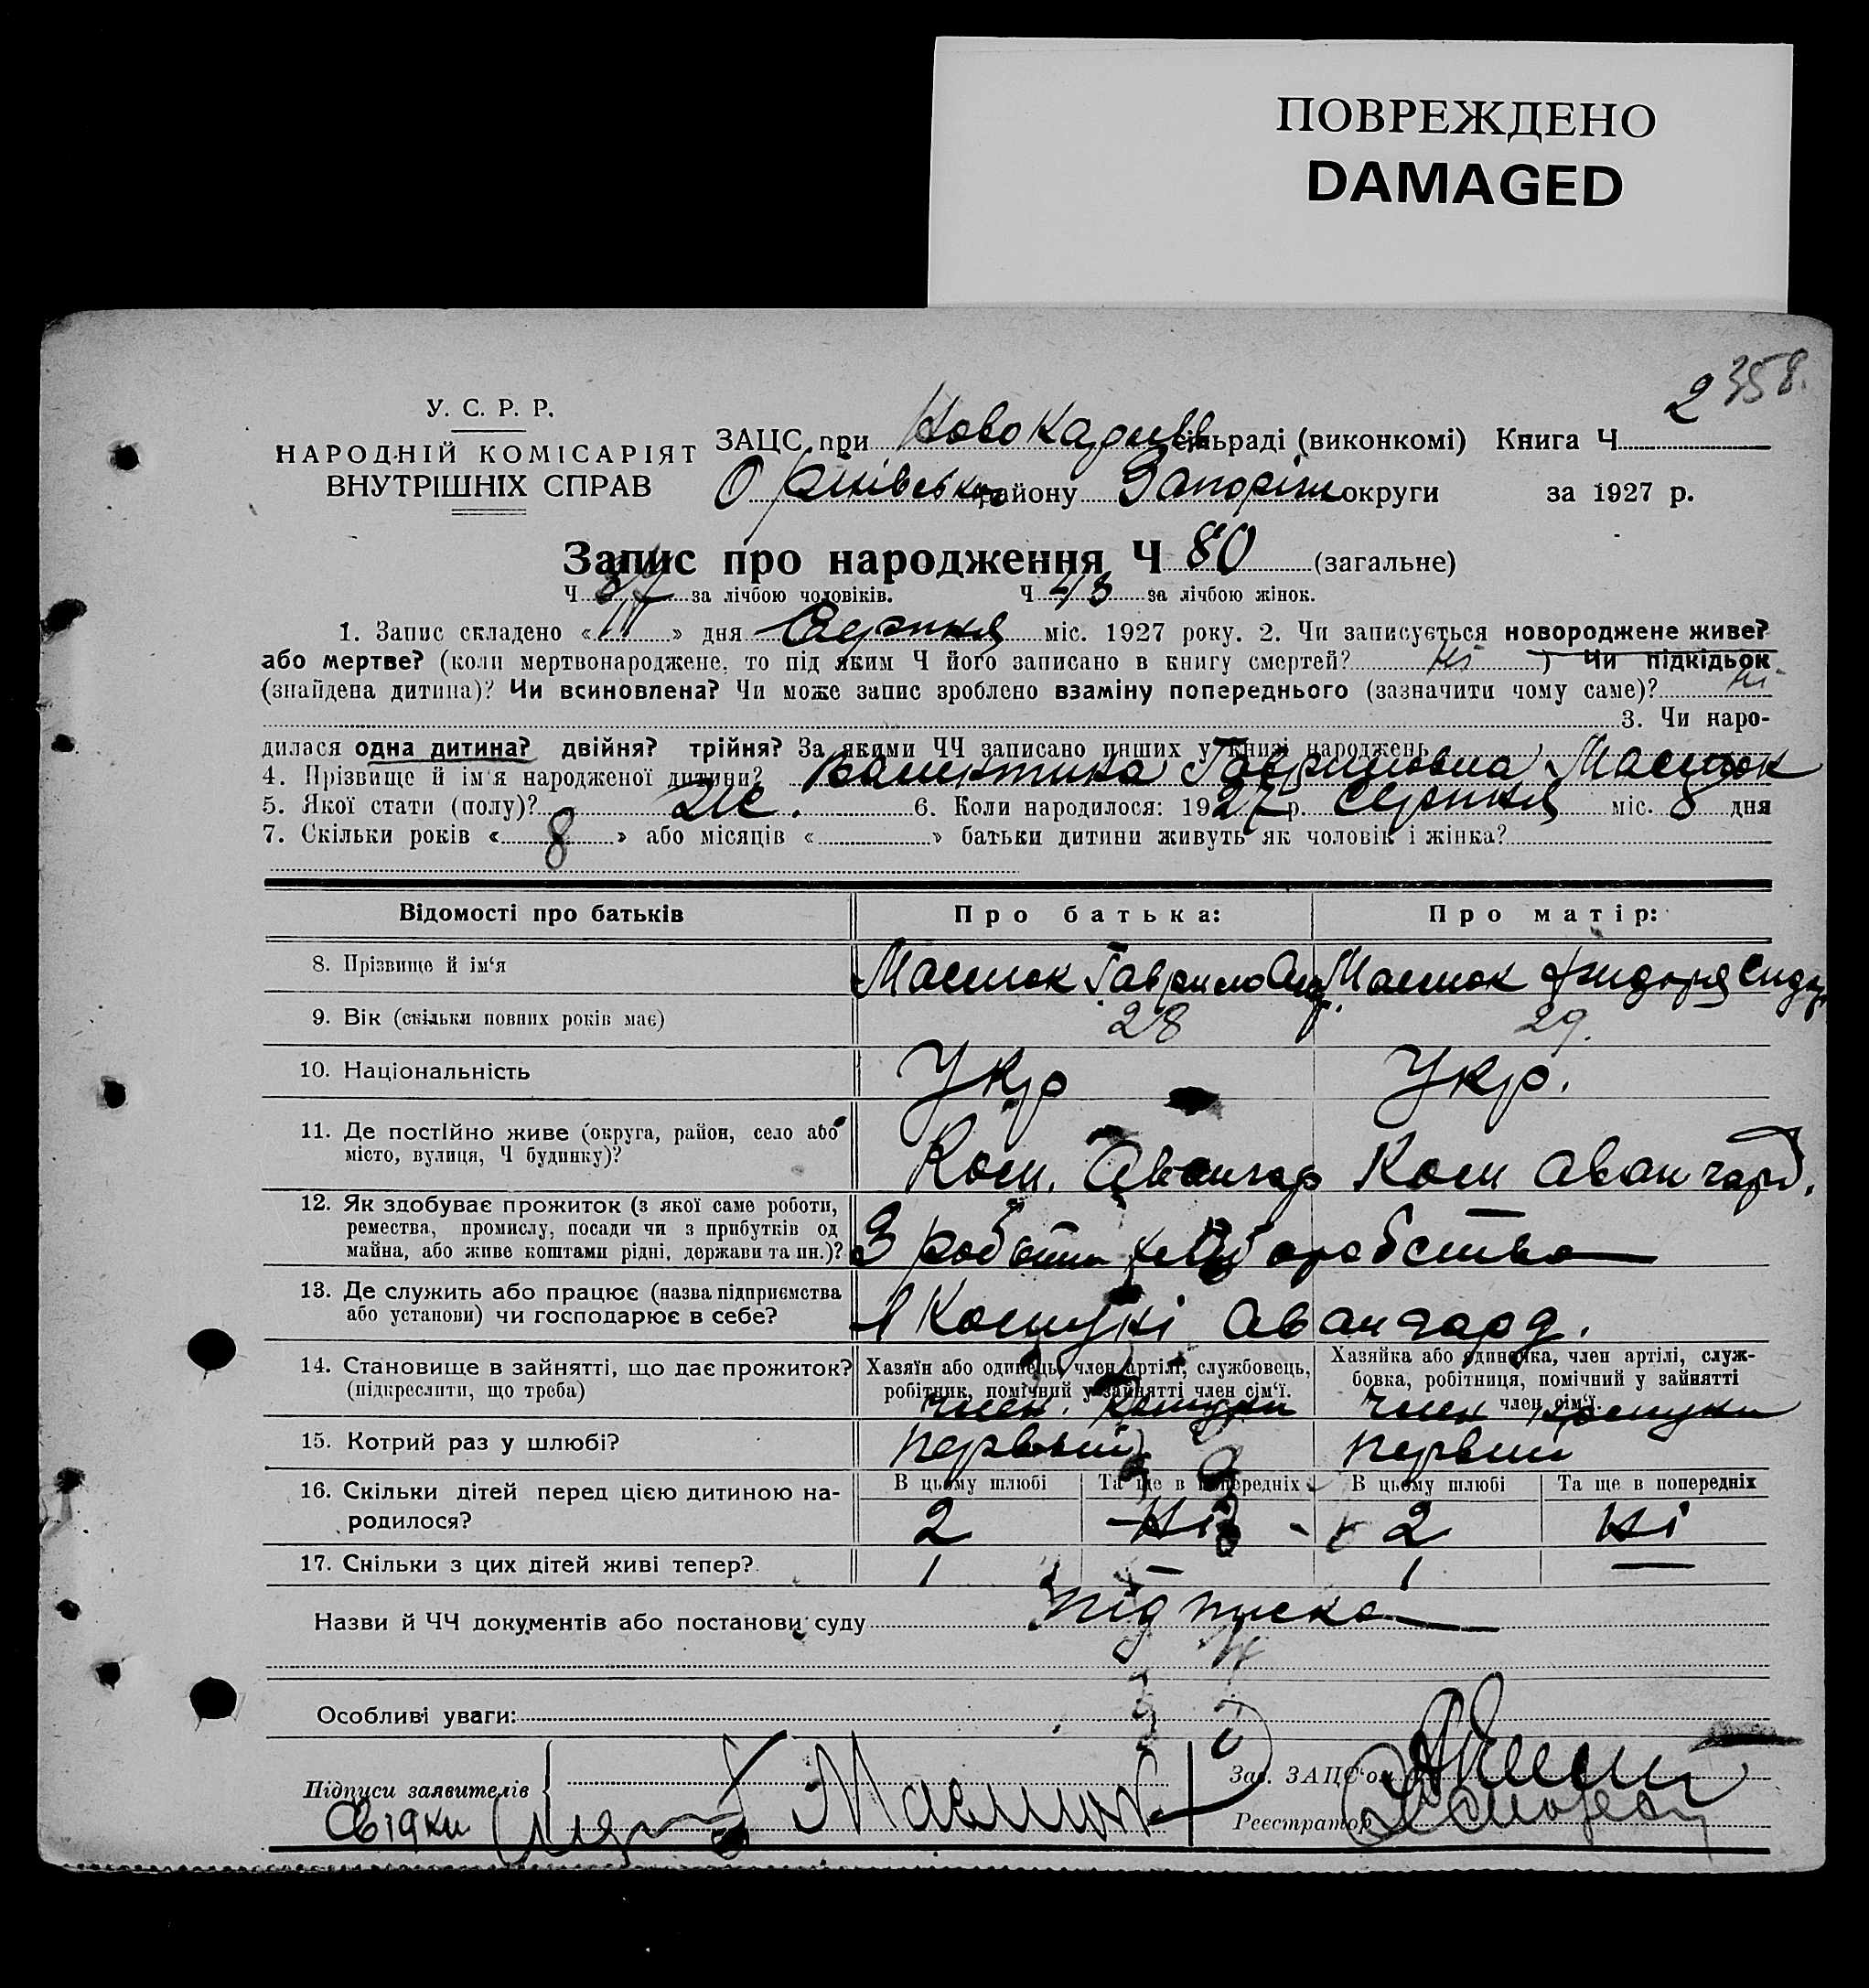 ПОВРЕЖДЕНО
DAMAGED
2 358.
У. С. Р. Р.
НАРОДНІЙ КОМІСАРІЯТ
ВНУТРІШНІХ СПРАВ
ЗАЦС при сільраді (виконкомі) Книга Ч
Оріхівськ району Запоріж округи за 1927 р.
Запис про народження Ч 80 (загальне)
Ч за лічбою чоловіків. Ч 43 за лічбою жінок.
1. Запис складено « » дня Серпня міс. 1927 року. 2. Чи записується новороджене живе?
або мертве? (коли мертвонароджене, то під яким Ч його записано в книгу смертей? ні ) Чи підкідьок
(знайдена дитина)? Чи всиновлена? Чи може запис зроблено взаміну попереднього (зазначити чому саме)? ні
3. Чи наро-
дилася одна дитина? двійня? трійня? За якими ЧЧ записано инших у книзі народжень
4. Прізвище й ім'я народженої дитини? Валентина Гавриловна Маслюк
5. Якої стати (полу)? Ж. 6. Коли народилося: 1927 р. Серпня міс. 8 дня
7. Скільки років « 8 » або місяців « » батьки дитини живуть як чоловік і жінка?
Відомості про батьків Про батька: Про матір:
8. Прізвище й ім'я Маслюк Гаврило Маслюк
9. Вік (скільки повних років має) 28 29.
10. Національність Укр Укр.
11. Де постійно живе (округа, район, село або
місто, вулиця, Ч будинку)?
Ком. Авангар Ком Авангард.
12. Як здобуває прожиток (з якої саме роботи,
ремества, промислу, посади чи з прибутків од
майна, або живе коштами рідні, держави та ин.)?
З
13. Де служить або працює (назва підприємства
або установи) чи господарює в себе?
Комуні Авангард.
14. Становище в зайнятті, що дає прожиток?
(підкреслити, що треба)
Хазяїн або одинець, член артілі, службовець,
робітник, помічний у зайнятті член сім'ї.
Член Комуни
Хазяйка або одиначка, член артілі, служ-
бовка, робітниця, помічний у зайнятті
член сім'ї.
Член комуни
15. Котрий раз у шлюбі? Первый Первий
16. Скільки дітей перед цією дитиною на-
родилося?
В цьому шлюбі Та ще в попередніх В цьому шлюбі Та ще в попередніх
2 Ні 2 Ні
17. Скільки з цих дітей живі тепер? 1 — 1 —
Назви й ЧЧ документів або постанови суду підписка
Особливі уваги:
Підписи заявителів Маслюк Зав. ЗАЦС'ом
Свідки Реєстратор